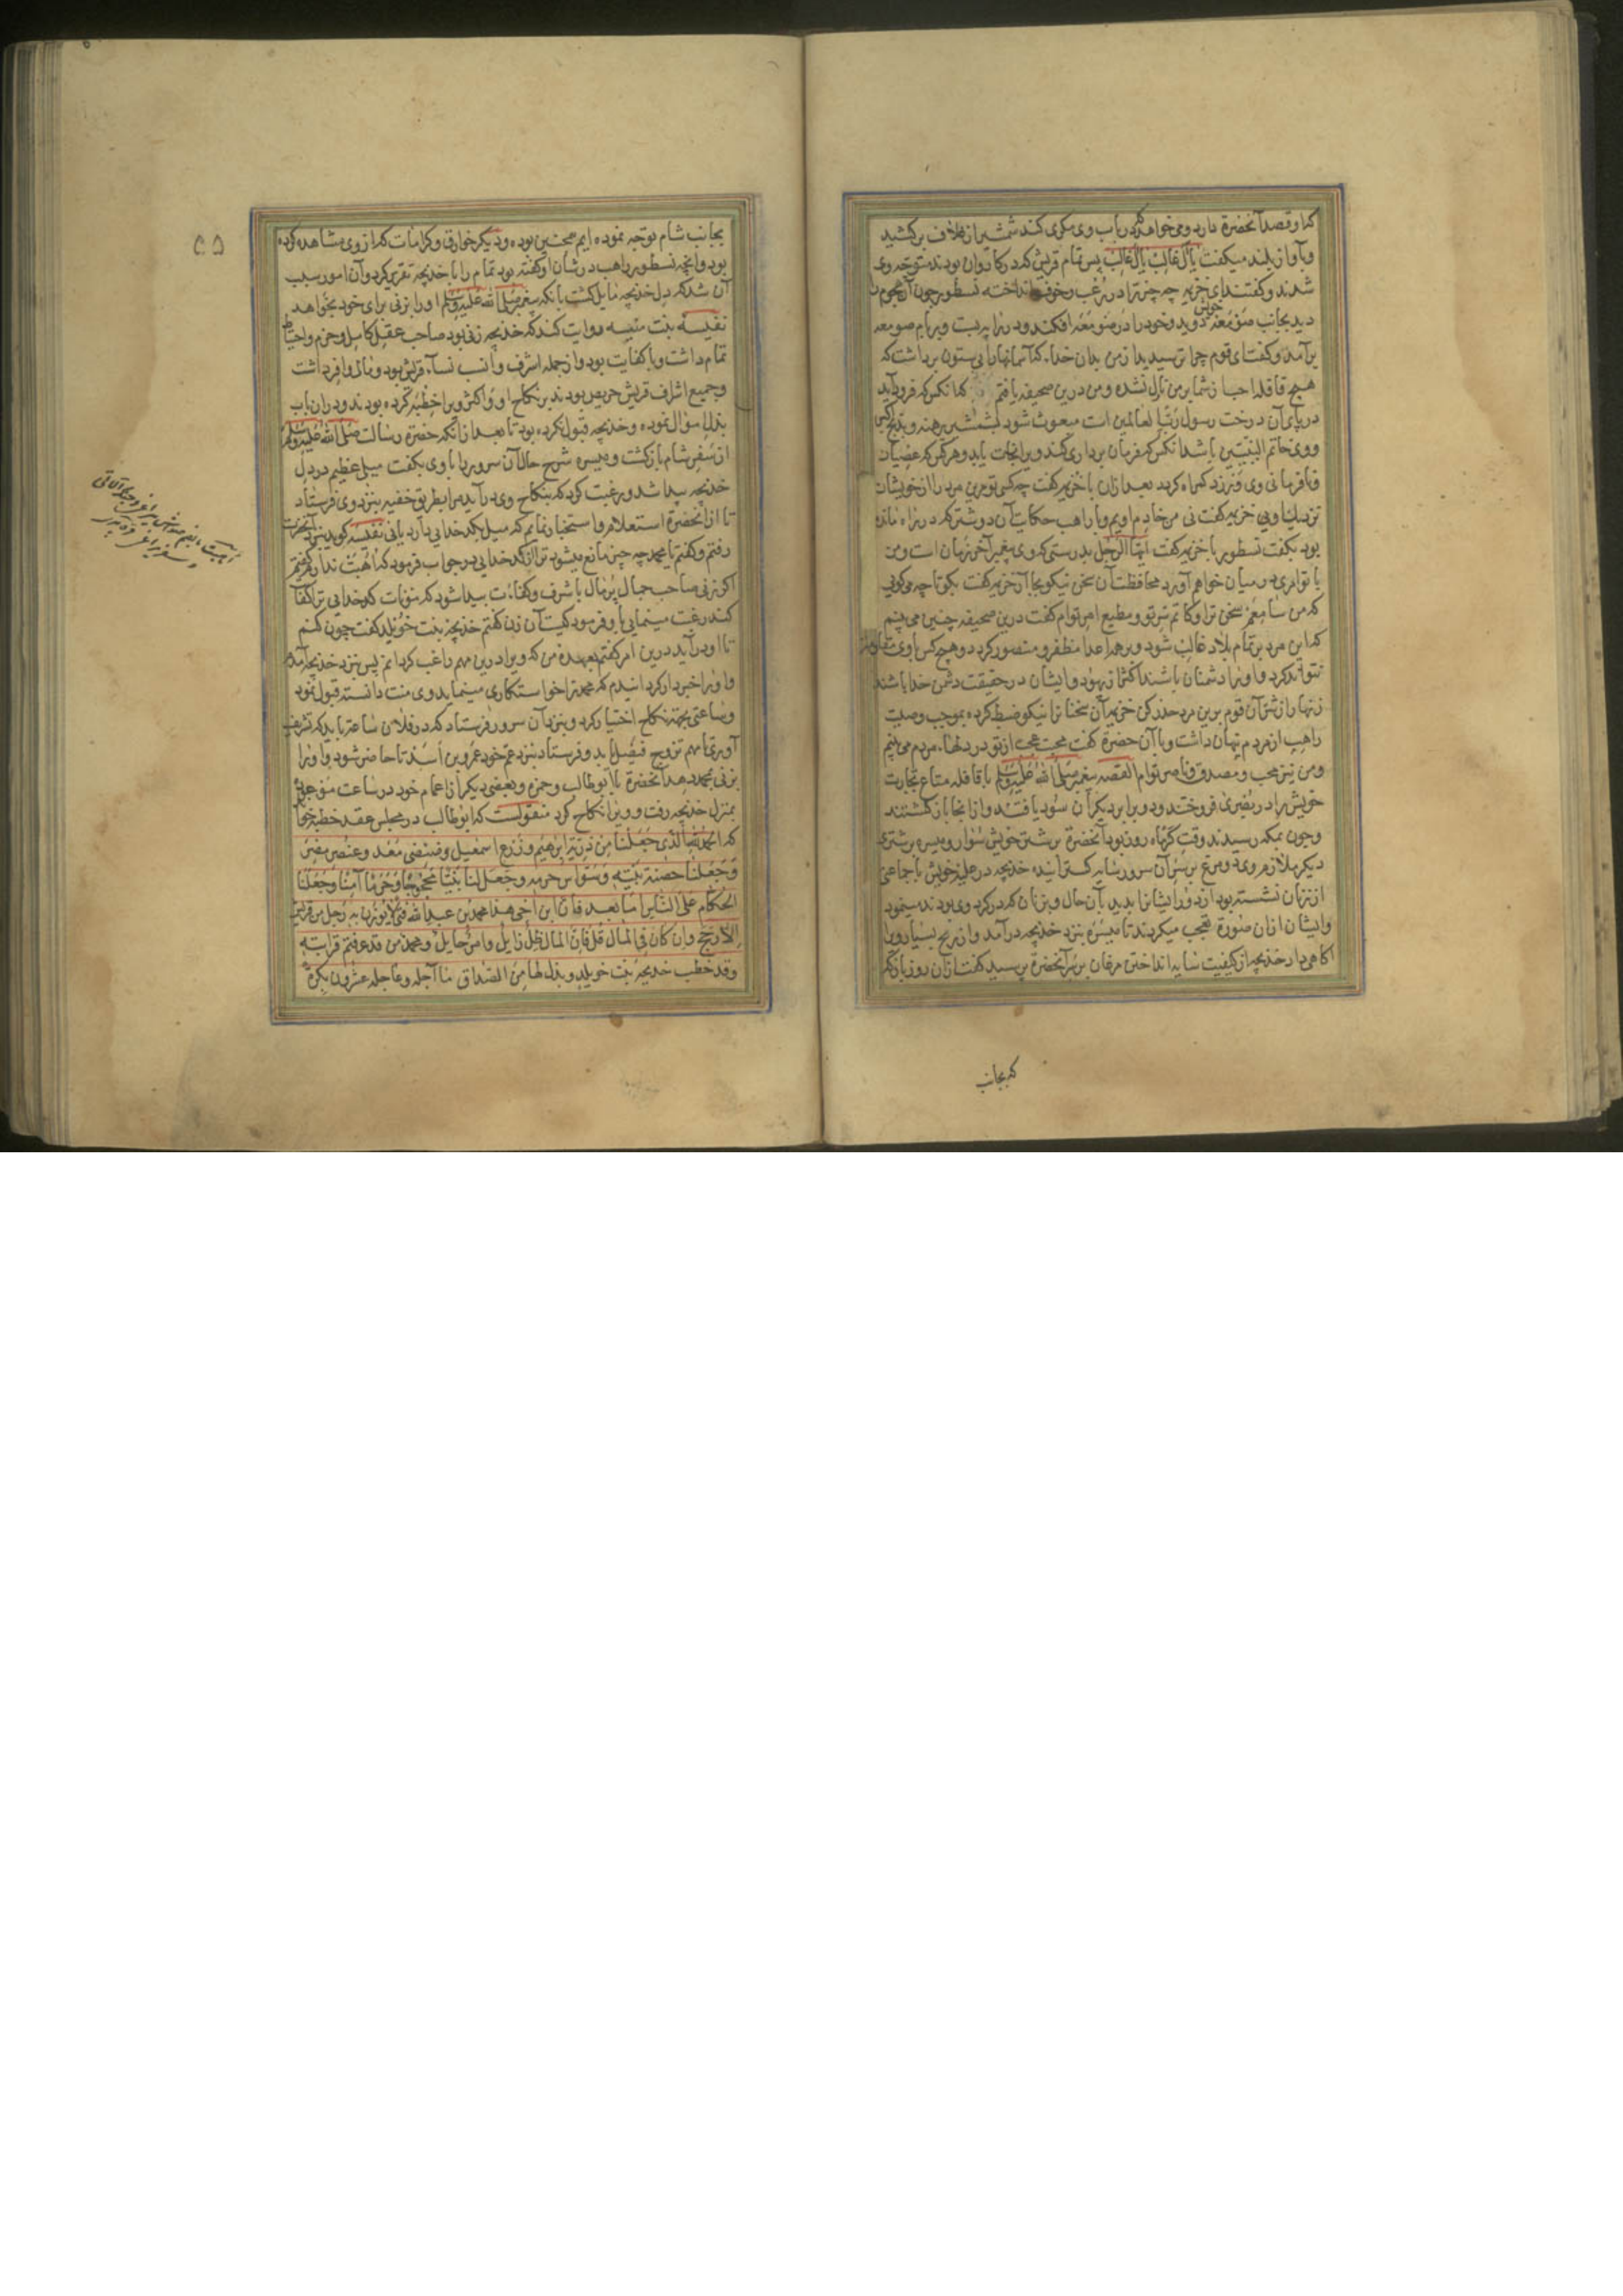 که او قصد آنحضرة دارد و می‌خواهد که در باب وی مکری کند شمشیر از غلاف برکشید
و بآواز بلند میکفت یا آل غالب یا آل غالب پس تمام قریش که در کاروان بودند متوجه وی
شدند و کفتند ای خزیمه چه چیز ترا در رعب و خوف انداخته نسطور چون آن هجوم را
دید بجانب صومعه خویش دوید و خود را در صومعه افکند و در را ببست و بر بام صومعه
برآمد و کفت ای قوم چرا ترسیدید از من بدان خدا که آسمانها را بی ستون برداشت که
هیچ قافله احب از شما بر من نازل نشده و من درین صحیفه یافتم که آنکس که فرود آید
در پای آن درخت رسول رب العالمین است مبعوث شود بشمشیر برهنه و بذبح
و وی خاتم النبیین باشد آنکس که فرمان برداری کند ویرا نجات یابد و هر کس که عصیان
و نافرمانی وی ورزد کمراه کردد بعد ازان با خزیمه کفت چه کسی تو مرین مرد را از خویشان
نزدیک اویی خزیمه کفت نی من خادم اویم و با راهب حکایت آن دو شتر که در راه مانده
بود بکفت نسطور با خزیمه کفت ایها الرجل بدرستی که وی پیغمبر آخر زمان است و من
با تو امری در میان خواهم آورد محافظت آن سخن نیکو بجا آر خزیمه کفت بکو تا چه می کویی
که من سامع سخن ترا و کاتم سر تو و مطیع امر توام کفت درین صحیفه چنین می بینم
که این مرد بر تمام بلاد غالب شود و بر همه اعدا مظفر و منصور کردد و هیچ کس با وی مقاومت
نتواند کرد و او را دشمنان باشند اکثر از یهود و ایشان در حقیقت دشمن خدا باشند
زنهار از شر آن قوم برین مرد حذر کن خزیمه آن سخنانرا نیکو ضبط کرده بموجب وصیت
راهب از مردم پنهان داشت و با آن حضرة کفت محبت عجب از تو در دلهاء مردم می بینم
و من نیز محب و مصدق و ناصر توام القصه پیغمبر صلی الله علیه وسلم با قافله متاع تجارت
خویش را در بصری فروختند و دو برابر دیکر آن سود یافتند و از انجا بازکشتند
و چون بمکه رسیدند وقت کرمکاه روز بود آنحضرة بر شتر خویش سوار و میسره بر شتری
دیکر ملازم وی و دو مرغ بر سر آن سرور سایه کسترانیده خدیجه در علیه خویش با جماعتی
از زنان نشسته بود آن دورا ایشانرا بدید بآن حال و بزنان که در کرد وی بودند مینمود
و ایشان از ان صورة تعجب میکردند تا میسره بنزد خدیجه درآمد و از ربح بسیار ویرا
آکاهی داد خدیجه از کیفیت سایه انداختن مرغان بر سر آنحضرة پرسید کفت ازان روز باز که
که بجانب
بجانب شام توجه نموده ایم همچنین بوده و دیکر خوارق و کرامات که از وی مشاهده کرده
بود و آنچه نسطور راهب در شان او کفته بود تمام را با خدیجه تقریر کرد و آن امور سبب
آن شد که دل خدیجه مایل کشت بآنکه پیغمبر صلی الله علیه وسلم او را بزنی برای خود بخواهد
نفیسه بنت منیه روایت کند که خدیجه زنی بود صاحب عقل کامل و حزم و احتیاط
تمام داشت و با کفایت بود و از جمله اشرف و انسب نساء قریش بود و مال وافر داشت
و جمیع اشراف قریش حریص بودند بر نکاح او و اکثر ویرا خطبه کرده بودند و دران باب
بذل سؤال نموده و خدیجه قبول نکرده بود تا بعد ازانکه حضرة رسالت صلی الله علیه وسلم
از سفر شام بازکشت و میسره شرح حال آن سرور را با وی بکفت میلی عظیم در دل
خدیجه پیدا شد و رغبت کرد که بنکاح وی درآید مرا بطریق خفیه بنزد وی فرستاد
تا از آنحضرة استعلام و استخبار نمایم که میل کدخدایی دارد یا نی نفیسه کوید بنزد آنحضرت
رفتم و کفتم یا محمد چه چیز مانع میشود ترا از کدخدایی در جواب فرمود که اهبت ندارم کفتم
اکر زنی صاحب جمال پر مال باشرف و کفاءت پیدا شود که مؤنات کدخدایی ترا کفا
کند رغبت مینمایی باو فرمود کیست آن زن کفتم خدیجه بنت خویلد کفت چون کنم
تا او درآید درین امر کفتم بعهده من که ویرا درین مهم راغب کردانم پس نزد خدیجه آمدم
و او را خبردار کردانیدم که محمد ترا خواستکاری مینماید وی منت دانسته قبول نمود
و ساعتی بجهته نکاح اختیار کرد و بنزد آن سرور فرستاد که در فلان ساعت باید که تشریف
آوری تا مهم تزویج فیصل یابد و فرستاد بنزد عم خود عمرو بن اسد تا حاضر شود و او را
بزنی بمحمد دهد آنحضرة با ابوطالب و حمزه و بعضی دیکر از اعمام خود در ساعت موعود
بمنزل خدیجه رفت و ویرا نکاح کرد منقولست که ابوطالب در مجلس عقد خطبه خواند
که الحمد لله الذی جعلنا من ذریة ابرهیم وزرع اسمعیل وضئضئ معد وعنصر مضر
وجعلنا حضنة بیته وسواس حرمه وجعل لنا بیتا محجوجا وحرما آمنا وجعلنا
الحکام علی الناس اما بعد فان ابن اخی هذا محمد بن عبد الله فتی لا یوزن به رجل من قریش
الا رجح وان کان فی المال قل فان المال ظل زایل وامر حایل ومحمد من قد عرفتم قرابته
وقد خطب خدیجة بنت خویلد وبذل لها من الصداق ما آجله وعاجله عشرون بکرة